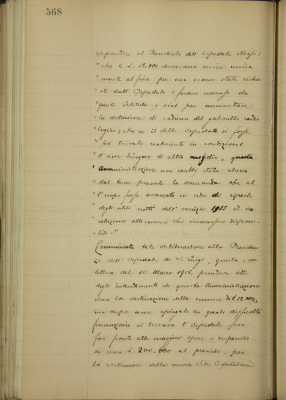 568
rispondere al Presidente dell'Ospedale stesso:
"che le £. 12.000 domandate
"mente al fine per cui erano state
"ste dall'Ospedale e furono concesse da
"questo Istituto, e cioè per aumentare
"la dotazione di radium del gabinetto radio
"logico; che se il detto Ospedale si fosse
"poi trovato realmente in condizioni
"d'aver bisogno di altro sussidio, questa
"Amministrazione non sarebbe stata aliena
"dal tener presente la domanda che al
"l'uopo fosse avanzata in sede di riparto
"degli utili netti dell'esercizio 1915 in
"relazione alle somme che rimanessero disponi-
"bili".
Comunicata tale deliberazione alla Presiden
za dell'Ospedale di S. Luigi, questa, con
lettera del 10 Marzo 1916, prendeva atto
degli intendimenti di questa Amministrazione
circa la destinazione della somma di £. 12.000,
ma dopo aver spiegato in quale difficoltà
finanziarie si trovava l'Ospedale per
far fronte alle maggiori spese
di circa £. 200.000 al previsto, per
la costruzione della nuova Sede Ospitaliera